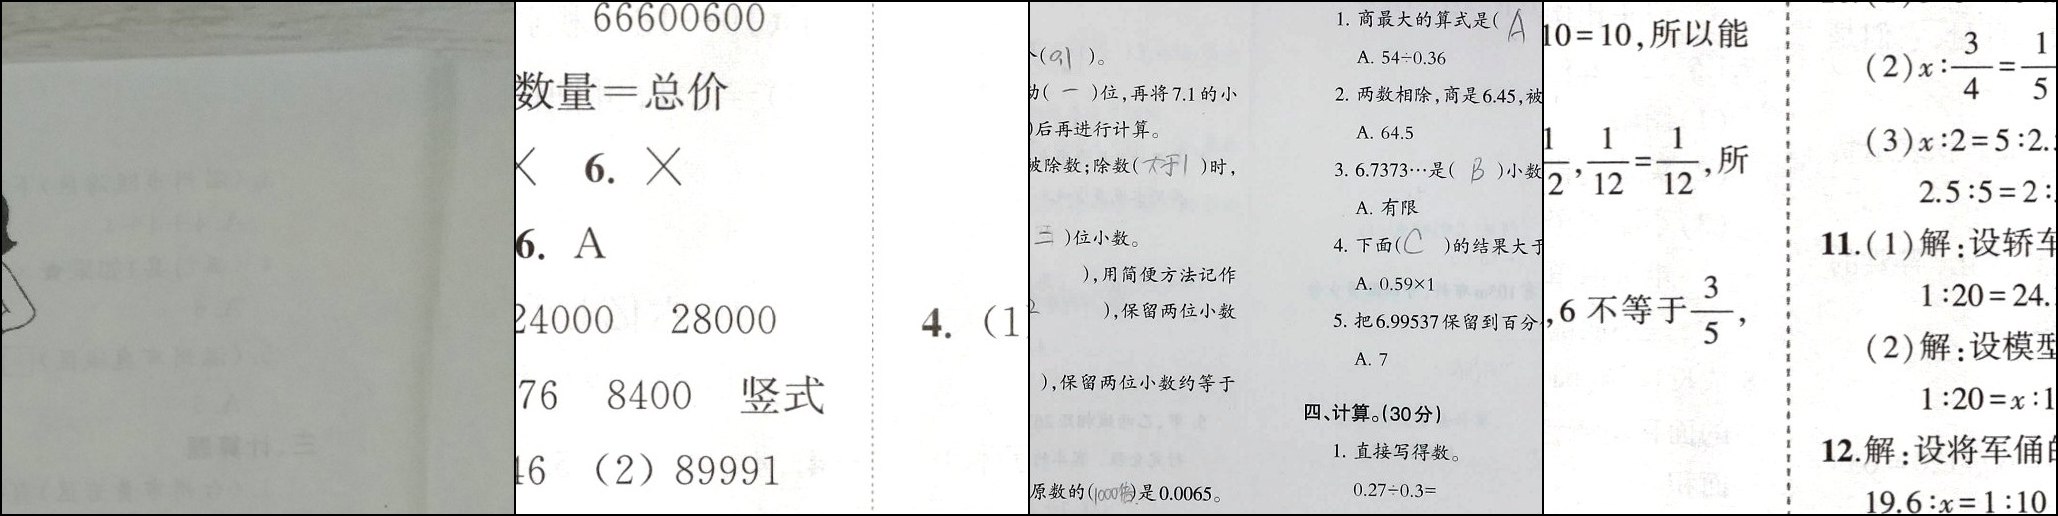 66600600
数量＝总价
× 6. ×
6. A
24000 28000
76 8400 竖式
46 （2）89991
4.（1
(0.1 )。
( 一 )位,再将7.1的小
)后再进行计算。
被除数;除数(大于1 )时,
三 )位小数。
),用简便方法记作
),保留两位小数
),保留两位小数约等于
原数的(1000倍)是0.0065。
1. 商最大的算式是( A
A. 54÷0.36
2. 两数相除,商是6.45,被
A. 64.5
3. 6.7373…是( B )小数
A. 有限
4. 下面( C )的结果大于
A. 0.59×1
5. 把6.99537保留到百分
A. 7
四、计算。(30分)
1. 直接写得数。
0.27÷0.3=
10=10,所以能
1/2,1/12=1/12,所
,6 不等于3/5,
(2)x∶3/4=1/5
(3)x∶2=5∶2.
2.5∶5=2∶
11.(1)解:设轿车
1∶20=24.
(2)解:设模型
1∶20=x∶1
12.解:设将军俑的
19.6∶x=1∶10